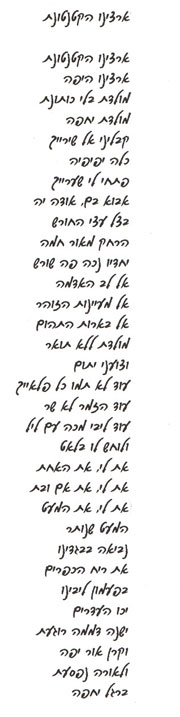 ארצינו הקטנטונת
ארצינו הקטנטונת
ארצינו היפה
מולדת בלי כותונת
מולדת יחפה
קבליני אל שירייך
כלה יפיפיה
פתחי לי שערייך
אבוא בם, אודה יה
בצל עצי החורש
הרחק מאור חמה
יחדיו נכה פה שורש
אל לב האדמה
אל מעיינות הזוהר
אל בארות התהום
מולדת ללא תואר
וצועני יתום
עוד לא תמו כל פלאייך
עוד הזמר לא שר
עוד ליבי מכה עם ליל
ולוחש לו בלאט
את לי, את האחת
את לי, את אם ובת
את לי, את המעט
המעט שנותר
נביאה בבגדינו
את ריח הכפרים
בפעמון ליבינו
יכו העדרים
ישנה דממה רוגעת
וקרן אור יפה
ולאורה נפסעת
ברגל יחפה